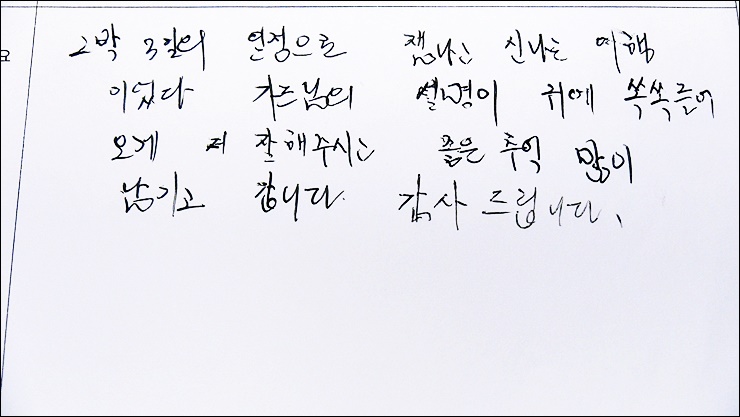 2박 3일의 연정으로 잼나는 신나는 여행
이었다 가즈님의 설명이 귀에 쏙쏙들어
오게 잘해주시는 좁은 추억 많이
남기고 갑니다. 감사 드립니다.